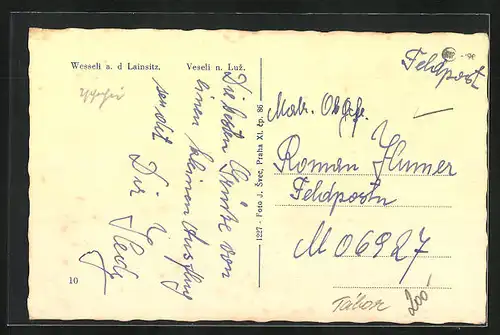 Wesseli a. d Lainsitz. Veselí n. Luž.
Die besten Grüße von
einen kleinen Ausflug
sendet Dir
10
1227 - Foto J. Švec, Praha XI. čp. 86
Feldpost
Matr. Obgfr.
Roman
Feldpostn
M 06927
Tábor
200